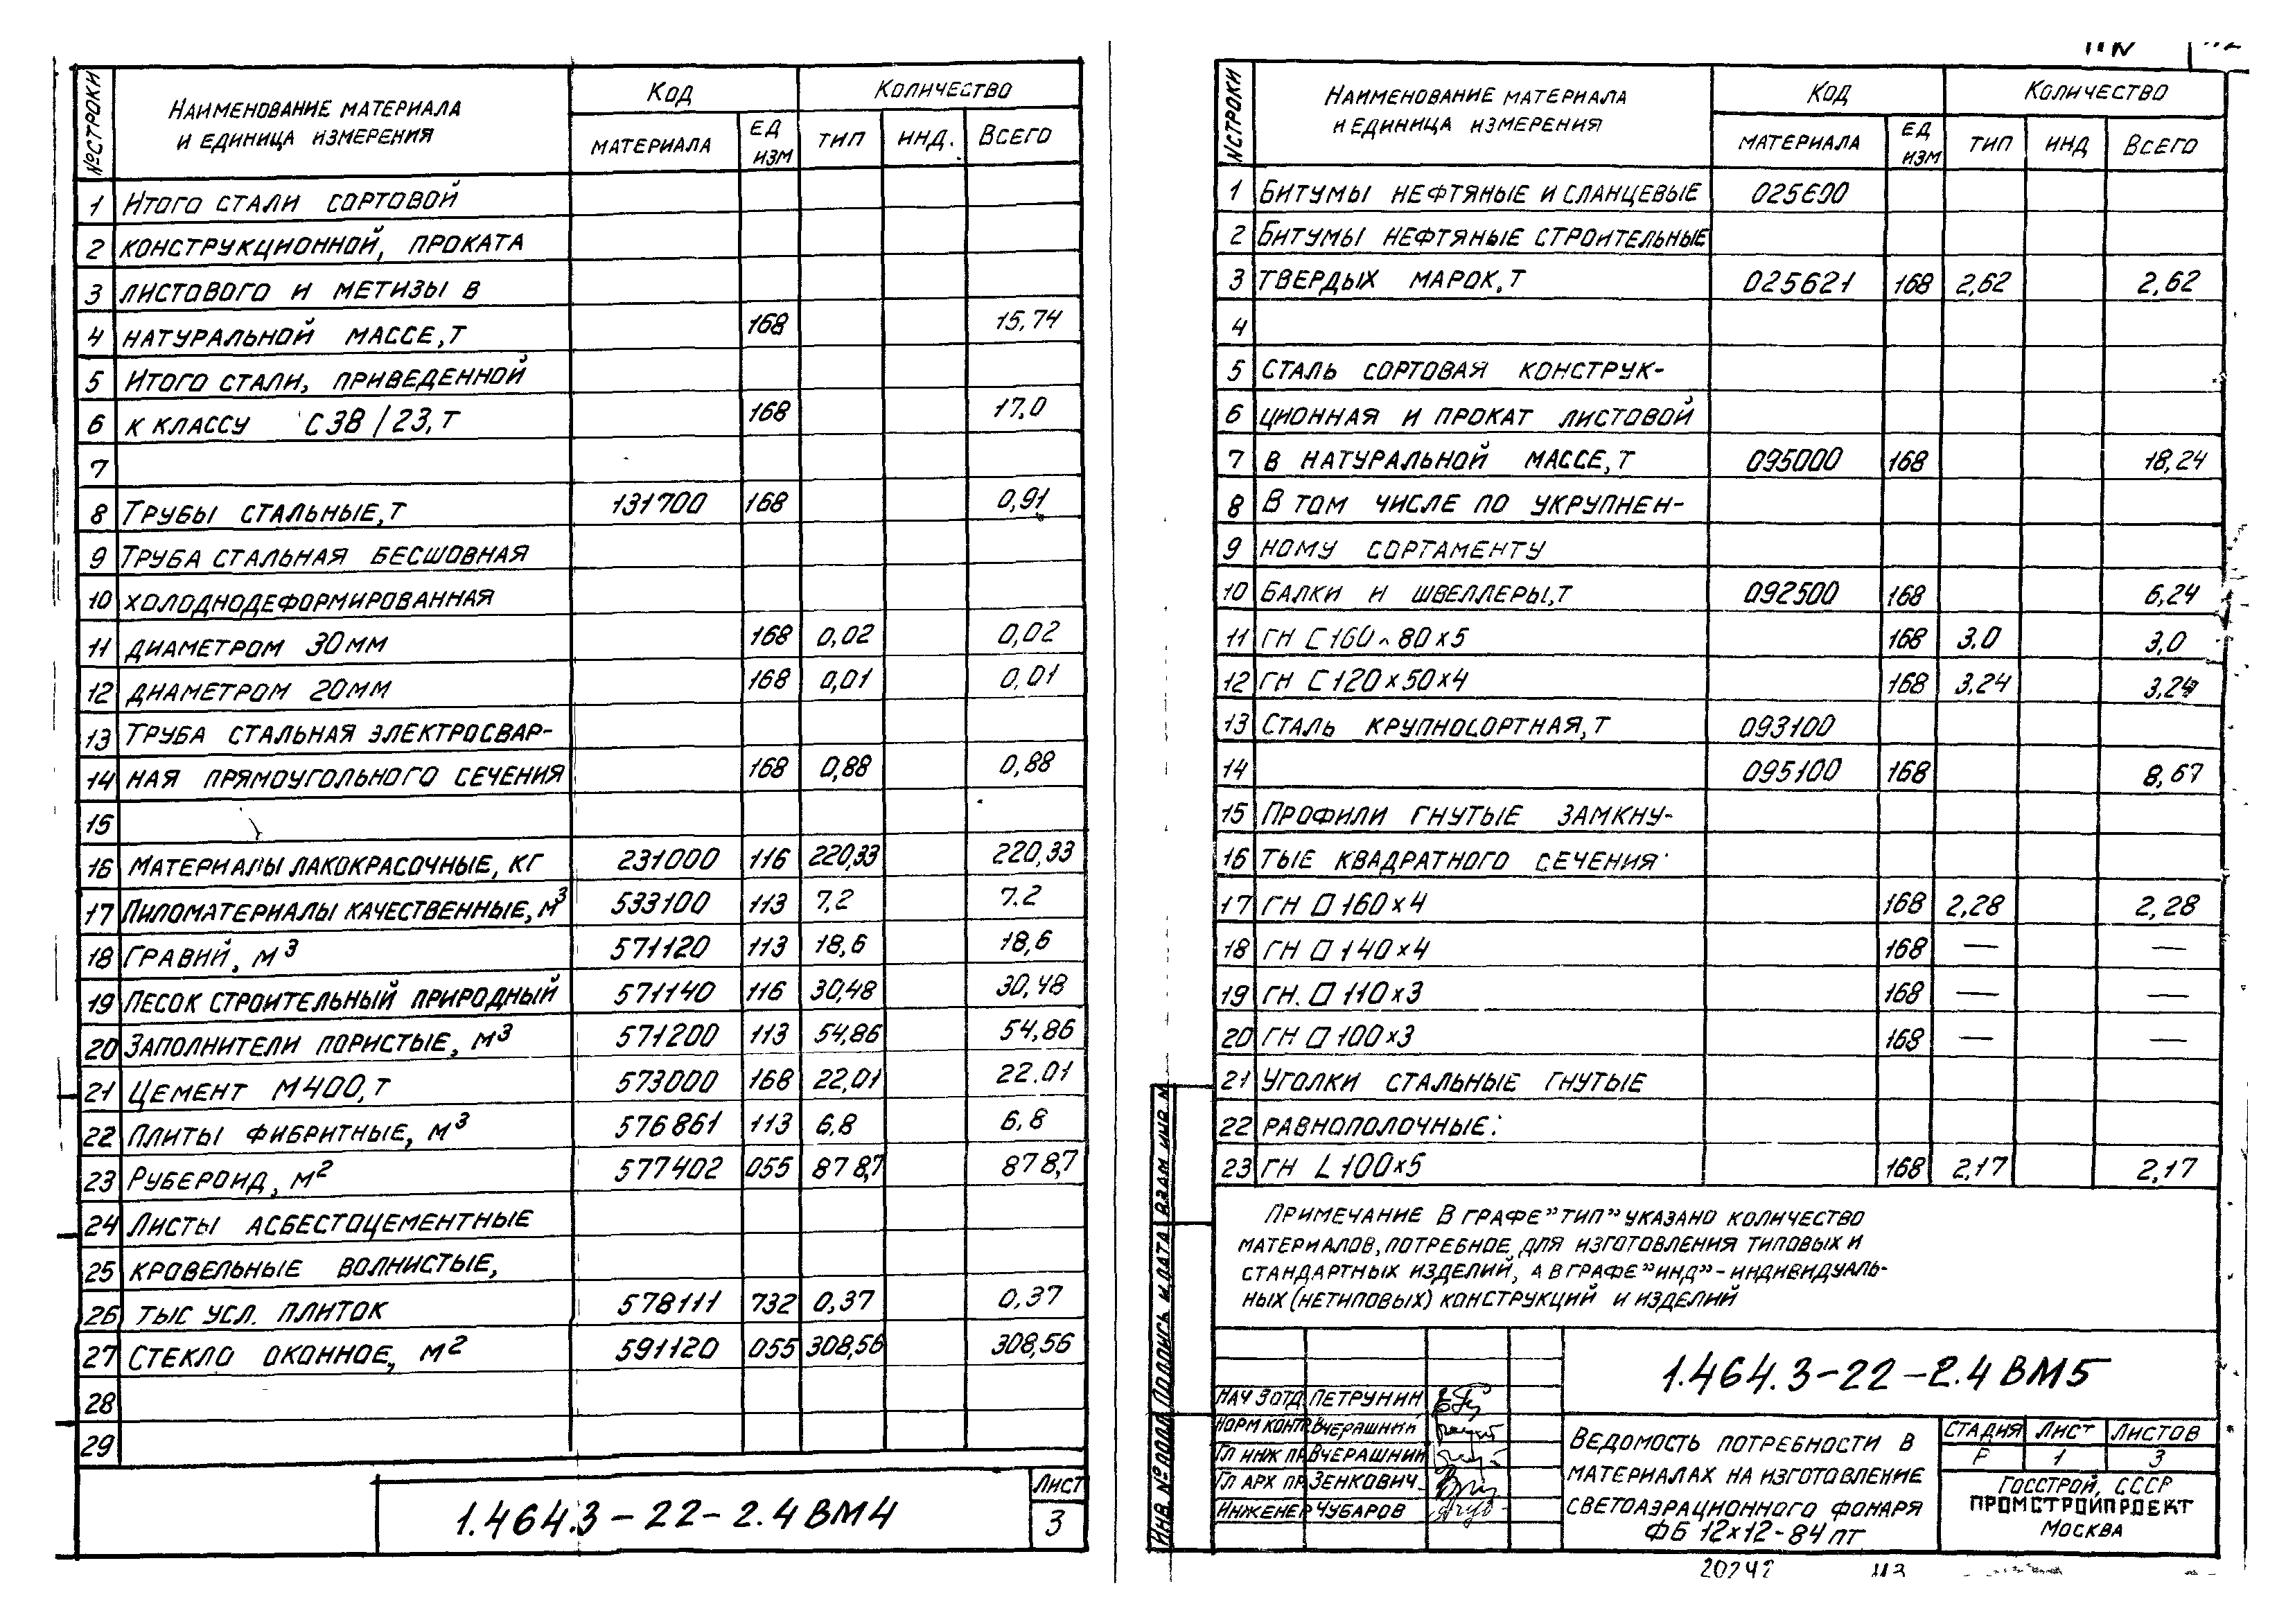 № СТРОКИ | НАИМЕНОВАНИЕ МАТЕРИАЛА И ЕДИНИЦА ИЗМЕРЕНИЯ | КОД | КОЛИЧЕСТВО
МАТЕРИАЛА | ЕД ИЗМ | ТИП | ИНД. | ВСЕГО
1 ИТОГО СТАЛИ СОРТОВОЙ
2 КОНСТРУКЦИОННОЙ, ПРОКАТА
3 ЛИСТОВОГО И МЕТИЗЫ В
4 НАТУРАЛЬНОЙ МАССЕ, Т 168 15,74
5 ИТОГО СТАЛИ, ПРИВЕДЕННОЙ
6 К КЛАССУ С38/23, Т 168 17,0
7
8 ТРУБЫ СТАЛЬНЫЕ, Т 131700 168 0,91
9 ТРУБА СТАЛЬНАЯ БЕСШОВНАЯ
10 ХОЛОДНОДЕФОРМИРОВАННАЯ
11 ДИАМЕТРОМ 30ММ 168 0,02 0,02
12 ДИАМЕТРОМ 20ММ 168 0,01 0,01
13 ТРУБА СТАЛЬНАЯ ЭЛЕКТРОСВАР-
14 НАЯ ПРЯМОУГОЛЬНОГО СЕЧЕНИЯ 168 0,88 0,88
15
16 МАТЕРИАЛЫ ЛАКОКРАСОЧНЫЕ, КГ 231000 116 220,33 220,33
17 ПИЛОМАТЕРИАЛЫ КАЧЕСТВЕННЫЕ, М³ 533100 113 7,2 7.2
18 ГРАВИЙ, М³ 571120 113 18,6 18,6
19 ПЕСОК СТРОИТЕЛЬНЫЙ ПРИРОДНЫЙ 571140 116 30,48 30,48
20 ЗАПОЛНИТЕЛИ ПОРИСТЫЕ, М³ 571200 113 54,86 54,86
21 ЦЕМЕНТ М400, Т 573000 168 22,01 22.01
22 ПЛИТЫ ФИБРИТНЫЕ, М³ 576861 113 6,8 6,8
23 РУБЕРОИД, М² 577402 055 878,7 878,7
24 ЛИСТЫ АСБЕСТОЦЕМЕНТНЫЕ
25 КРОВЕЛЬНЫЕ ВОЛНИСТЫЕ,
26 ТЫС УСЛ. ПЛИТОК 578111 732 0,37 0,37
27 СТЕКЛО ОКОННОЕ, М² 591120 055 308,56 308,56
28
29
1.464.3-22-2.4 ВМ4
ЛИСТ
3
N СТРОКИ | НАИМЕНОВАНИЕ МАТЕРИАЛА И ЕДИНИЦА ИЗМЕРЕНИЯ | КОД | КОЛИЧЕСТВО
МАТЕРИАЛА | ЕД ИЗМ | ТИП | ИНД | ВСЕГО
1 БИТУМЫ НЕФТЯНЫЕ И СЛАНЦЕВЫЕ 025600
2 БИТУМЫ НЕФТЯНЫЕ СТРОИТЕЛЬНЫЕ
3 ТВЕРДЫХ МАРОК, Т 025621 168 2,62 2,62
4
5 СТАЛЬ СОРТОВАЯ КОНСТРУК-
6 ЦИОННАЯ И ПРОКАТ ЛИСТОВОЙ
7 В НАТУРАЛЬНОЙ МАССЕ, Т 095000 168 18,24
8 В ТОМ ЧИСЛЕ ПО УКРУПНЕН-
9 НОМУ СОРТАМЕНТУ
10 БАЛКИ И ШВЕЛЛЕРЫ, Т 092500 168 6,24
11 ГН С160×80×5 168 3,0 3,0
12 ГН С120×50×4 168 3,24 3,24
13 СТАЛЬ КРУПНОСОРТНАЯ, Т 093100
14 095100 168 8,67
15 ПРОФИЛИ ГНУТЫЕ ЗАМКНУ-
16 ТЫЕ КВАДРАТНОГО СЕЧЕНИЯ:
17 ГН □ 160×4 168 2,28 2,28
18 ГН □ 140×4 168 — —
19 ГН. □ 110×3 168 — —
20 ГН □ 100×3 168 — —
21 УГОЛКИ СТАЛЬНЫЕ ГНУТЫЕ
22 РАВНОПОЛОЧНЫЕ:
23 ГН L 100×5 168 2,17 2,17
ПРИМЕЧАНИЕ В ГРАФЕ "ТИП" УКАЗАНО КОЛИЧЕСТВО
МАТЕРИАЛОВ, ПОТРЕБНОЕ ДЛЯ ИЗГОТОВЛЕНИЯ ТИПОВЫХ И
СТАНДАРТНЫХ ИЗДЕЛИЙ, А В ГРАФЕ "ИНД" - ИНДИВИДУАЛЬ-
НЫХ (НЕТИПОВЫХ) КОНСТРУКЦИЙ И ИЗДЕЛИЙ
1.464.3-22-2.4 ВМ5
НАЧ ЗОТД ПЕТРУНИН
НОРМ КОНТР ВЧЕРАШНИЙ
ГЛ ИНЖ ПР ВЧЕРАШНИЙ
ГЛ АРХ ПР ЗЕНКОВИЧ
ИНЖЕНЕР ЧУБАРОВ
ВЕДОМОСТЬ ПОТРЕБНОСТИ В
МАТЕРИАЛАХ НА ИЗГОТОВЛЕНИЕ
СВЕТОАЭРАЦИОННОГО ФОНАРЯ
ФБ 12×12-84 ПТ
СТАДИЯ ЛИСТ ЛИСТОВ
Р 1 3
ГОССТРОЙ, СССР
ПРОМСТРОЙПРОЕКТ
МОСКВА
ИНВ № ПОДЛ ПОДПИСЬ И ДАТА ВЗАМ ИНВ N